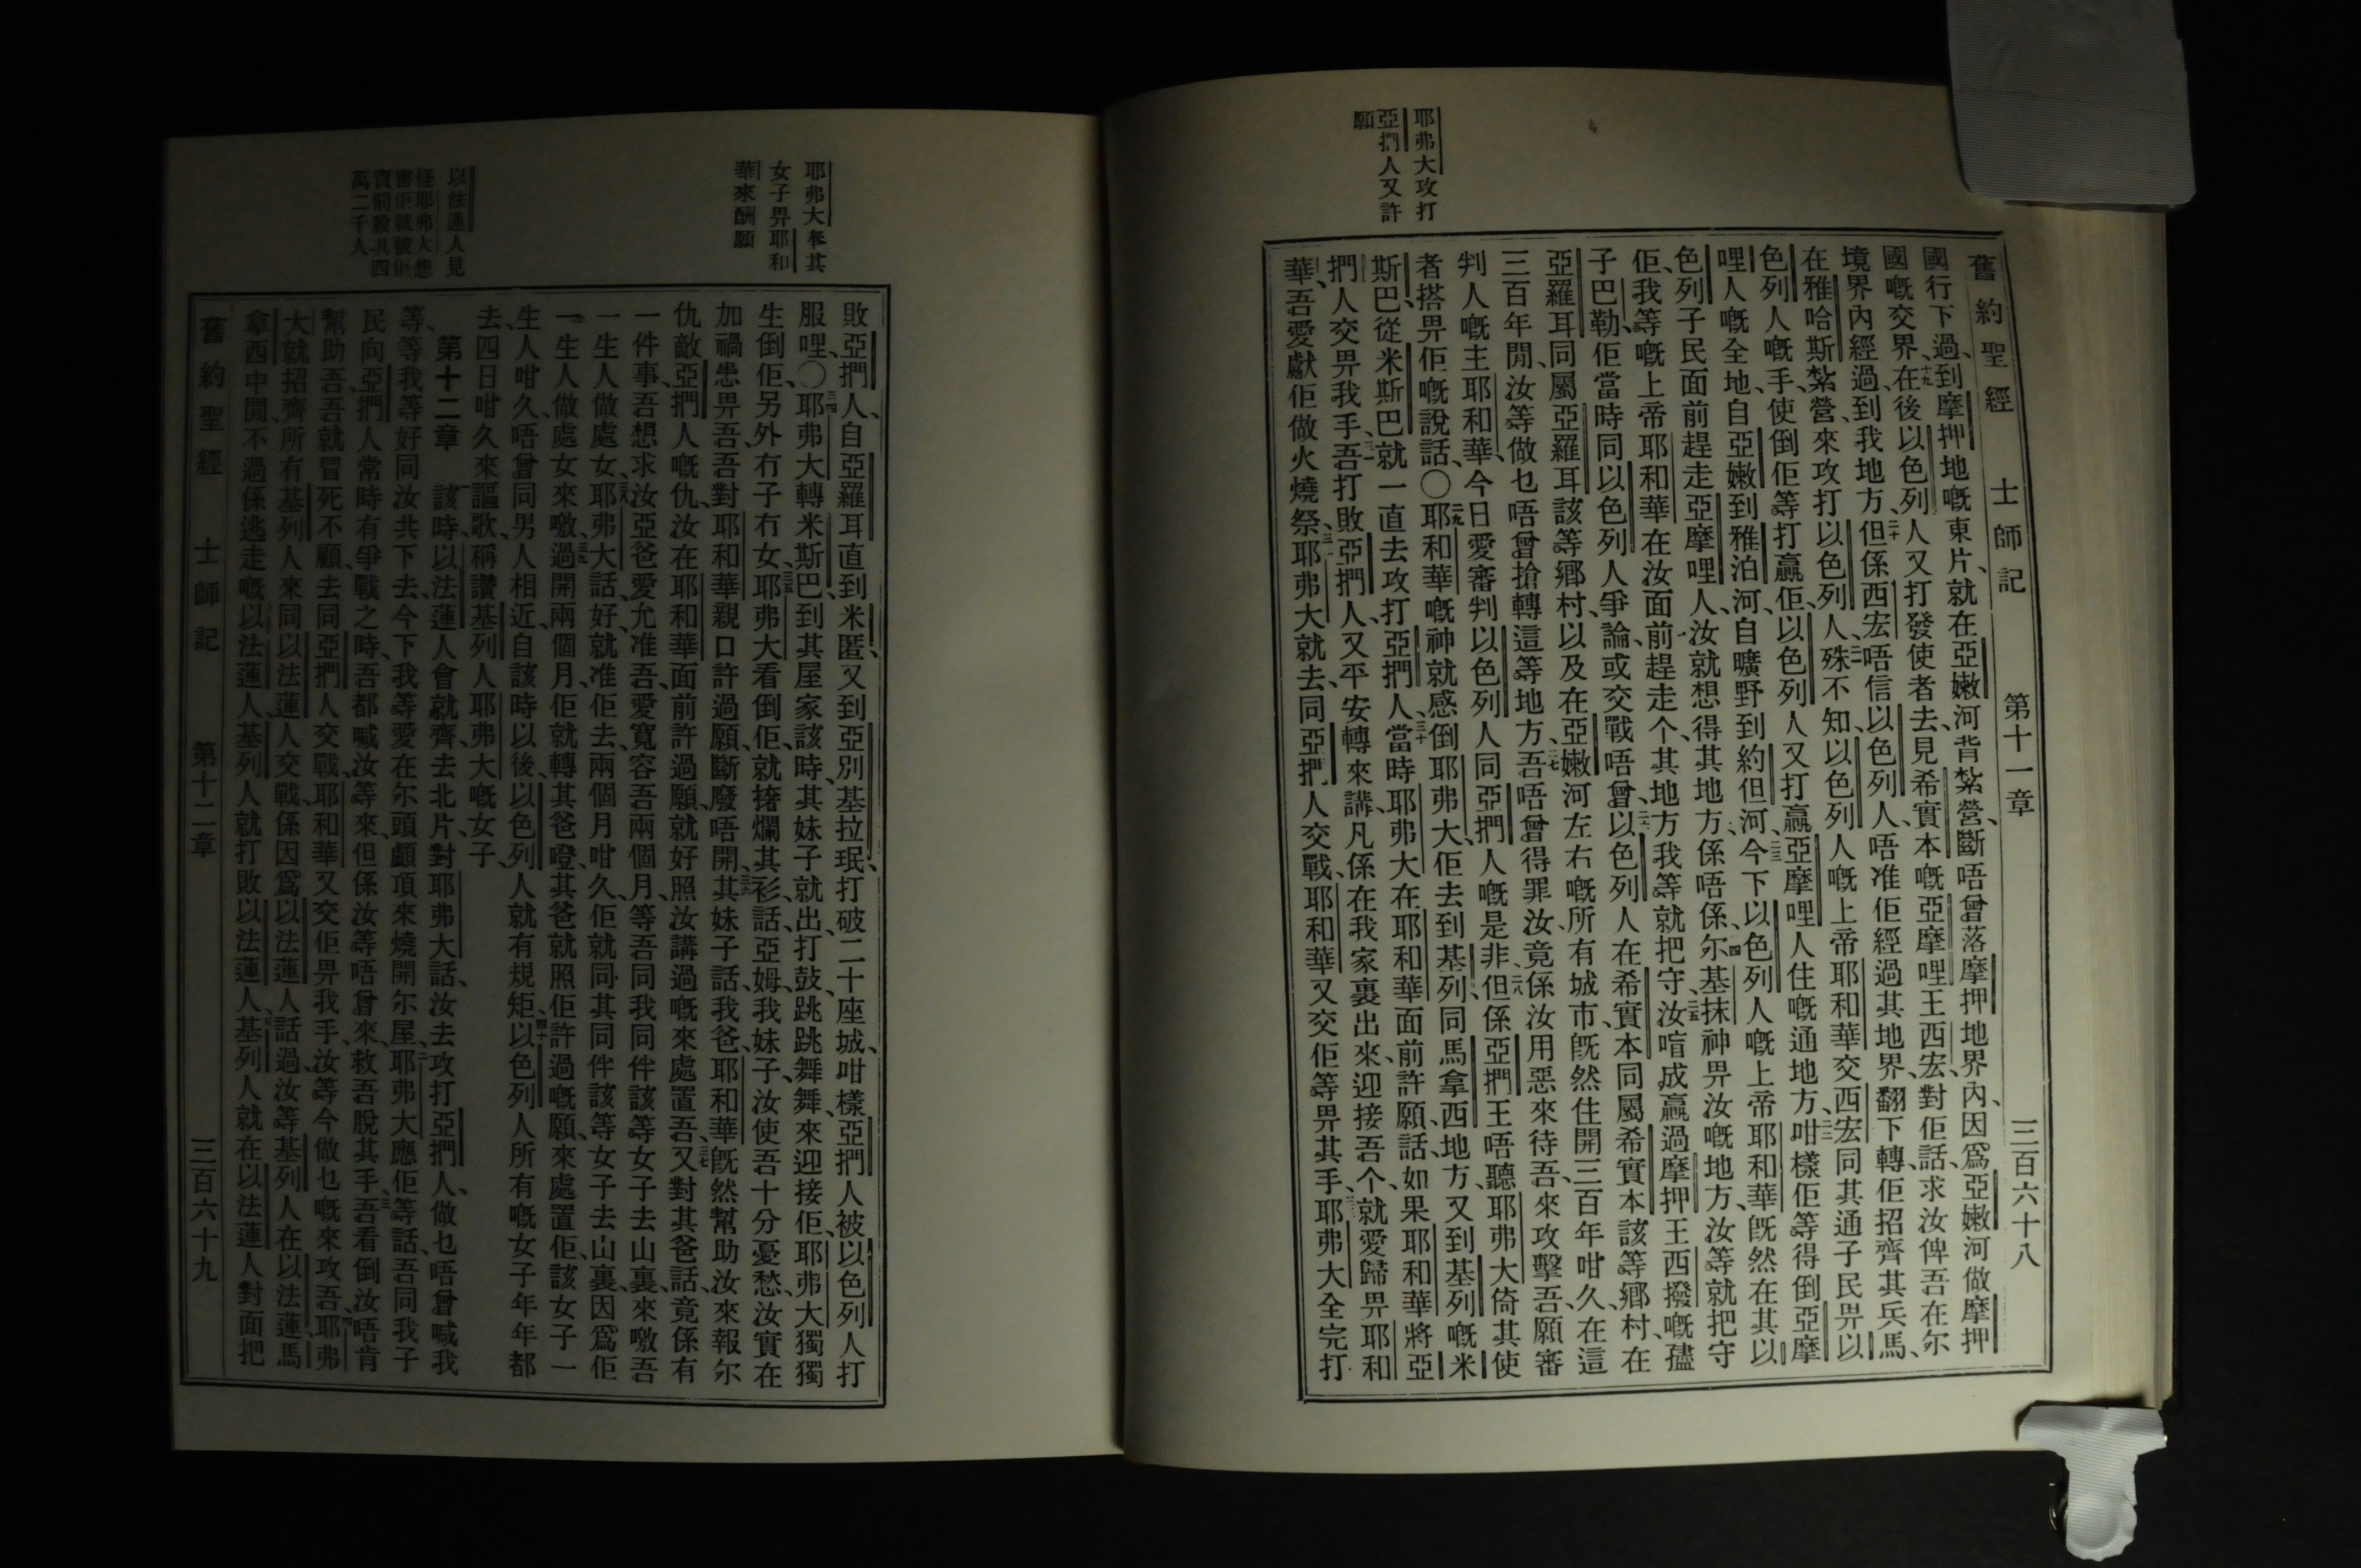 耶弗大攻打
亞捫人又許
願
舊約聖經　士師記　第十一章　三百六十八
國行下過、到摩押地嘅東片、就在亞嫩河背紮營、斷唔曾落摩押地界內、因爲亞嫩河做摩押
國嘅交界、十九在後以色列人又打發使者去、見希實本嘅亞摩哩王西宏、對佢話、求汝俾吾在尔
境界內經過、到我地方、二十但係西宏唔信以色列人、唔准佢經過其地界、翻下轉佢招齊其兵馬、
在雅哈斯紮營、來攻打以色列人、二一殊不知、以色列人嘅上帝耶和華交西宏同其通子民畀以
色列人嘅手、使倒佢等打贏佢、以色列人又打贏亞摩哩人住嘅通地方、二二咁樣佢等得倒亞摩
哩人嘅全地、自亞嫩到雅泊河、自曠野到約但河、二三今下以色列人嘅上帝耶和華旣然在其以
色列子民面前趕走亞摩哩人、汝就想得其地方、係唔係、二四尔基抹神畀汝嘅地方、汝等就把守
佢、我等嘅上帝耶和華在汝面前趕走个、其地方我等就把守、二五汝喧成贏過摩押王西撥嘅孻
子巴勒、佢當時同以色列人爭論、或交戰唔曾、二六以色列人在希實本同屬希實本該等鄉村、在
亞羅耳同屬亞羅耳該等鄉村、以及在亞嫩河左右嘅所有城市、旣然住開三百年咁久、在這
三百年閒、汝等做乜唔曾搶轉這等地方、二七吾唔曾得罪汝、竟係汝用惡來待吾、來攻擊吾、願審
判人嘅主耶和華、今日愛審判以色列人同亞捫人嘅是非、二八但係亞捫王唔聽耶弗大倚其使
者搭畀佢嘅說話、〇二九耶和華嘅神就感倒耶弗大、佢去到基列、同馬拿西地方、又到基列嘅米
斯巴、從米斯巴就一直去攻打亞捫人、三十當時耶弗大在耶和華面前許願、話、如果耶和華將亞
捫人交畀我手、三一吾打敗亞捫人、又平安轉來、講凡係在我家裏出來、迎接吾个、就愛歸畀耶和
華、吾愛獻佢做火燒祭、三二耶弗大就去、同亞捫人交戰、耶和華又交佢等畀其手、三三耶弗大全完打
耶弗大奉其
女子畀耶和
華來酬願
以法蓮人見
怪耶弗大想
害佢就被佢
責罰殺其四
萬二千人
敗亞捫人、自亞羅耳直到米匿、又到亞別基拉珉、打破二十座城、咁樣亞捫人被以色列人打
服哩、〇三四耶弗大轉米斯巴、到其屋家、該時、其妹子就出、打鼓、跳跳舞舞、來迎接佢、耶弗大獨獨
生倒佢、另外冇子冇女、三五耶弗大看倒佢、就撦爛其衫、話、亞姆、我妹子、汝使吾十分憂愁、汝實在
加禍患畀吾、吾對耶和華親口許過願、斷廢唔開、三六其妹子話、我爸、耶和華旣然幫助汝來報尔
仇敵亞捫人嘅仇、汝在耶和華面前許過願、就好照汝講過嘅來處置吾、三七又對其爸話、竟係有
一件事、吾想求汝亞爸愛允准吾、愛寬容吾兩個月、等吾同我同伴該等女子去山裏、來噭吾
一生人做處女、三八耶弗大話、好、就准佢去、兩個月咁久、佢就同其同伴該等女子去山裏、因爲佢
一生人做處女來噭、三九過開兩個月、佢就轉其爸嶝、其爸就照佢許過嘅願、來處置佢、該女子一
生人咁久、唔曾同男人相近、自該時以後、以色列人就有規矩、四十以色列人所有嘅女子年年都
去、四日咁久來謳歌、稱讚基列人耶弗大嘅女子、
第十二章　一該時、以法蓮人會就齊、去北片、對耶弗大話、汝去攻打亞捫人、做乜唔曾喊我
等、等我等好同汝共下去、今下我等愛在尔頭顱頂來燒開尔屋、二耶弗大應佢等話、吾同我子
民向亞捫人常時有爭戰之時、吾都喊汝等來、但係汝等唔曾來、救吾脫其手、三吾看倒汝唔肯
幫助吾、吾就冒死不顧、去同亞捫人交戰、耶和華又交佢畀我手、汝等今做乜嘅來攻吾、四耶弗
大就招齊所有基列人、來同以法蓮人交戰、係因爲以法蓮人話過、汝等基列人在以法蓮馬
拿西中閒、不過係逃走嘅以法蓮人、基列人就打敗以法蓮人、五基列人就在以法蓮人對面把
舊約聖經　士師記　第十二章　三百六十九